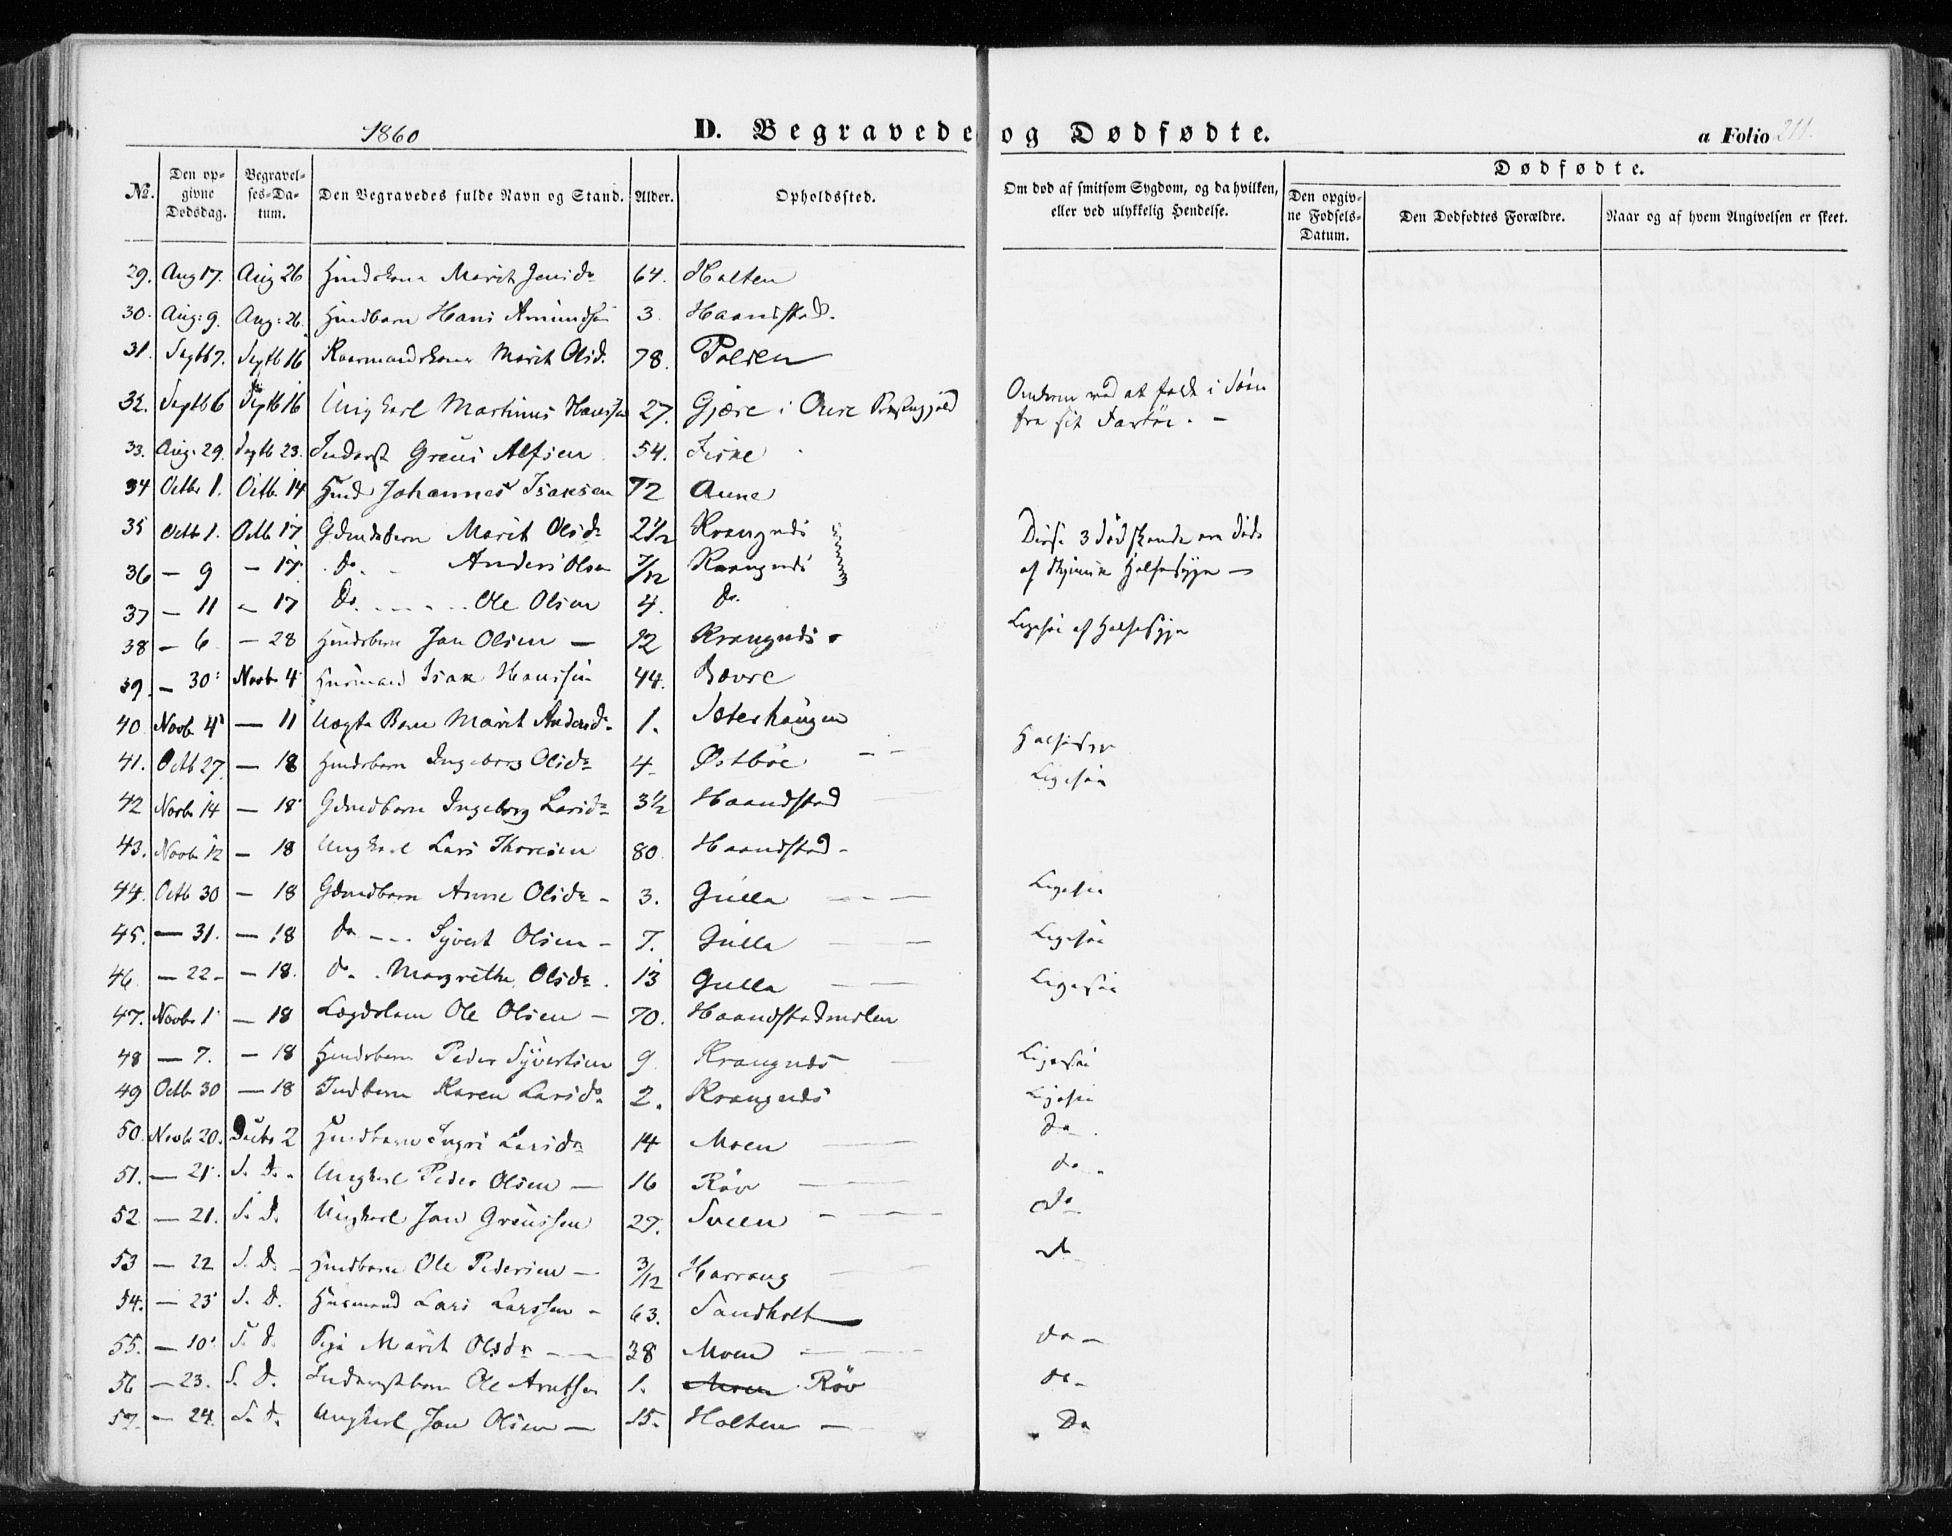 1860
D. Begravede og Dødfødte.
a Folio 211.
№.
Den opgivne Dødsdag.
Begravelses-Datum.
Den Begravedes fulde Navn og Stand.
Alder.
Opholdssted.
Om død af smitsom Sygdom, og da hvilken, eller ved ulykkelig Hendelse.
Dødfødte.
Den opgivne Fødsels-Datum.
Den Dødfødtes Forældre.
Naar og af hvem Angivelsen er skeet.
29. Aug 17. Aug 26 Marit 64. Holten
30. Aug: 9. Aug: 26. Hans Amundsen 3. Haandstad.
31. Septb 7. Septb 16 Kaarmandskone Marit Olsd. 78. Polden
32. Septb 6 Septb 16 Ungkarl Martinus Hanssen 27. Gjære i Aure Præstegjeld ved at falde i Søen
fra sit Fartøi. -
33. Aug. 29. Septb 23. Inderst Greus Alfsen 54. Fiske
34 Octb 1. Octb 14 Hmd Johannes Isaksen 72 Aune
35 Octb 1. Octb 17 Marit Olsdr 2 1/2 Krangnæs Disse 3 Sødskende ere døde
36 - 9 - 17 Do. Anders Olsen 7/12 Krangnæs af Halsesyge -
37 - 11 - 17 Do. Ole Olsen 4. Do.
38 - 6 - 28 Hmdsbarn Jon Olsen - 12 Krangnæs Ligesaa af Halsesyge
39. - 30 Novb 4 Husmand Isak Hanssen 44. Bævre
40 Novb 4 - 11 Uægte Barn Marit Andersdr 1. Sæterhaugen
41. Octb 27. - 18 Hmdsbarn Ingeborg Olsdr 4 Østbøe Halsesyge
42 Novb 14 - 18 Gdmdbarn Ingeborg Larsdr 3 1/2 Haandstad Ligesaa
43. Novb 12 - 18 Ungkarl Lars Thoresen 80 Haandstad -
44. Octb 30 - 18 Gdmdbarn Anne Olsdr - 3. Gulla Ligesaa
45. - 31. - 18 do Syvert Olsen - 7. Gulla Ligesaa
46 - 22 - - 18. do. Margrethe Olsdr. 13 Gulla Ligesaa
47. Novb 1 - 18 Lægdslem Ole Olsen - 70. Haandstadmelen
48 - 7. - 18 Hmdsbarn Peder Syvertsen 9 Krangnæs Ligesaa
49 Octb 30 - 18 Indbarn Karen Larsdr 2. Krangnæs Ligesaa
50. Novb 20. Decbr 2 Hmdbarn Ingri Larsdr 14 Moen Do.
51. - 21. S. D. Ungkarl Peder Olsen - 16 Røv do.
52 - 21. S. D. Ungkarl Jon Greussen 27. Sveen do
53 - 22 S. D. Hmdbarn Ole Pedersen - 3/12 Harrang do
54. - 23 S. D. Husmand Lars Larssen - 63. Sandholt
55. - 10 S. D. Pige Marit Olsdr - 38 Moen do -
56 - 23. S. D. Inderstbarn Ole Arntsen 1. Moen Røv do -
57. - 24. S. D. Ungkarl Jon Olsen - 15. Holten - Do